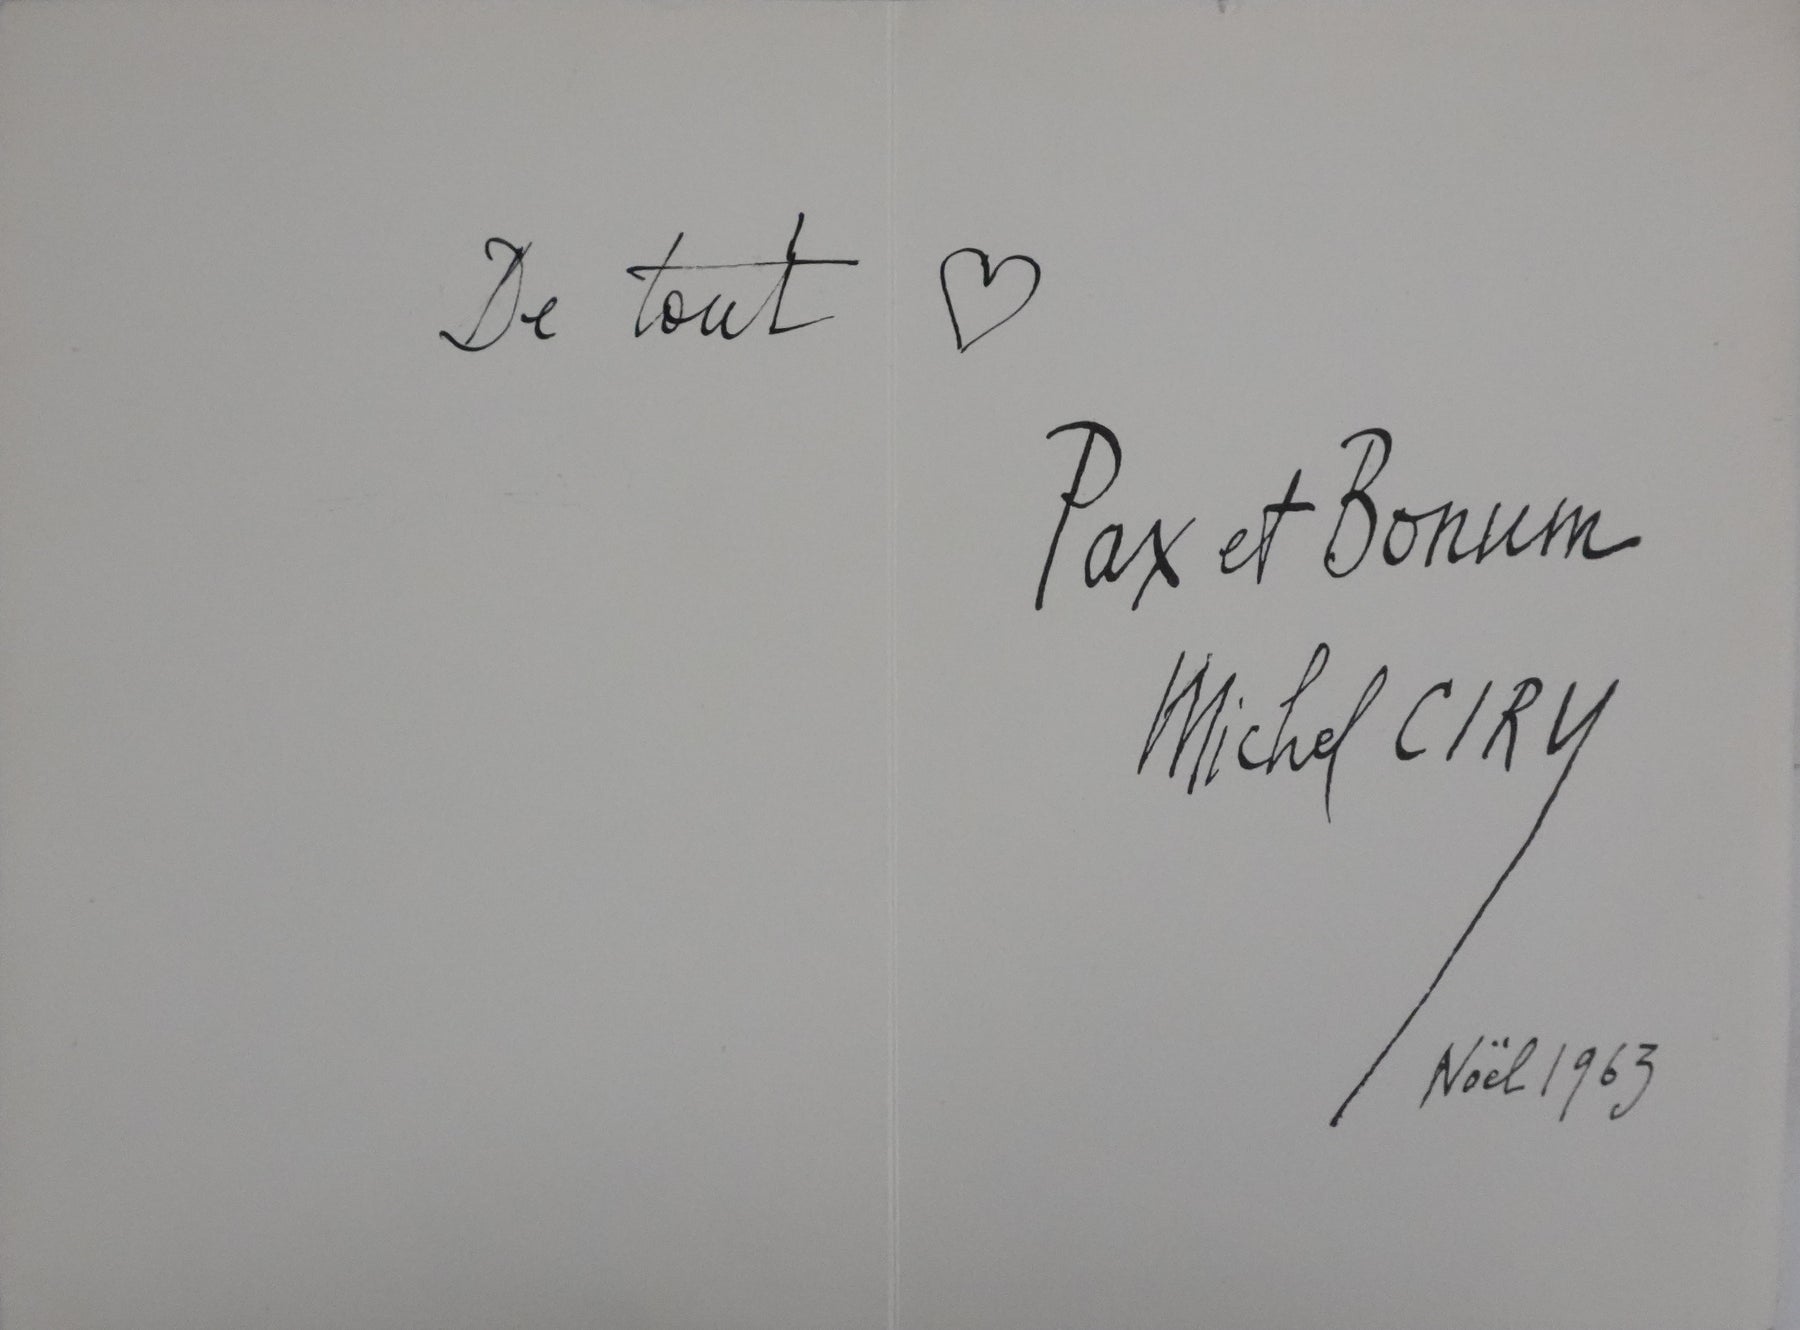 De tout ♡
Pax et Bonum
Michel CIRY
Nöël 1963